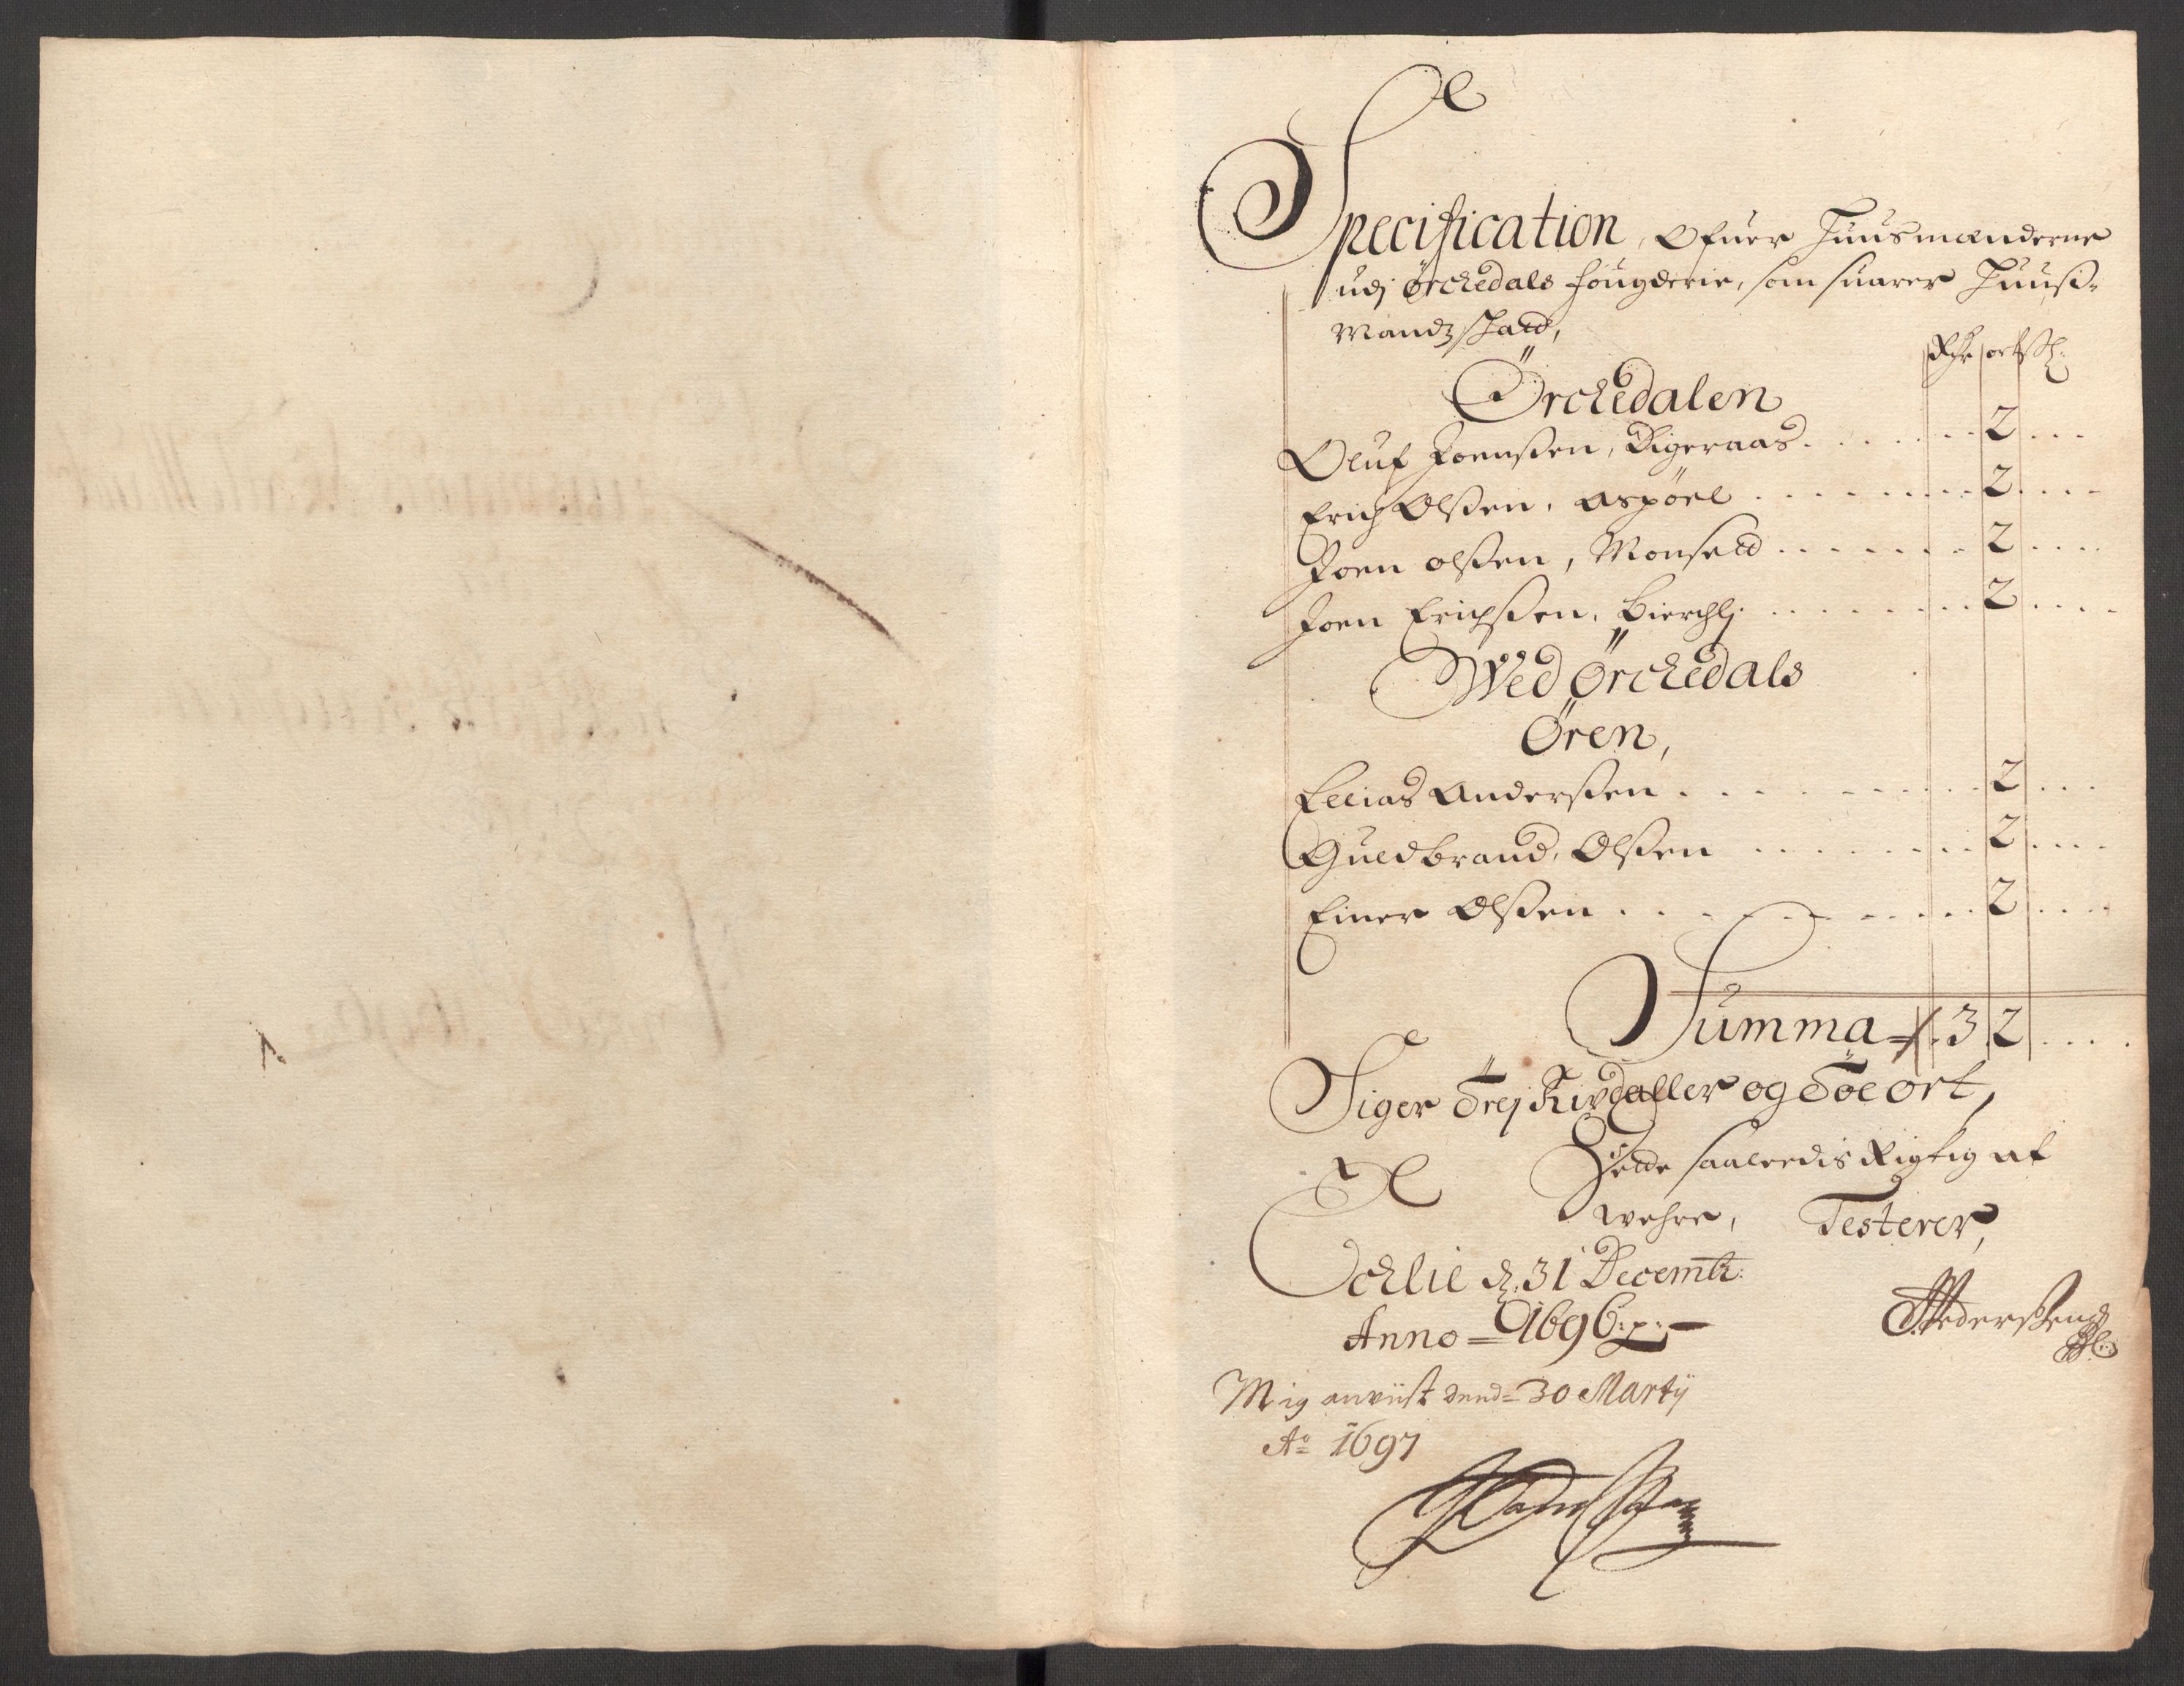 Specification, Ofuer Huusmænderne
udj Örchedals fougderie, som suarer Huuß-
Mandz skatt,
Rdr ort ß
Örchedalen
Oluf Joenßen, Digeraas . . . 2 . . .
Erich Olßen, Aspöel . . . 2 . . .
Joen olßen, Monseld . . . 2 . . .
Joen Erichßen, Bierchlj . . . 2 . . .
Wed Örchedals
Ören,
Ellias Anderßen . . . 2 . . .
Guldbrand, Olßen . . . 2 . . .
Einer Olßen . . . 2 . . .
Summa 3 2 . . .
Siger Trej Rixdaller og Toe ort,
saaledis Rigtig at
wehre, Testerer,
Ochlie d. 31 Decembr:
Anno = 1696:
Pederßen
Mig anviist dend= 30 Martij
Ao 1697